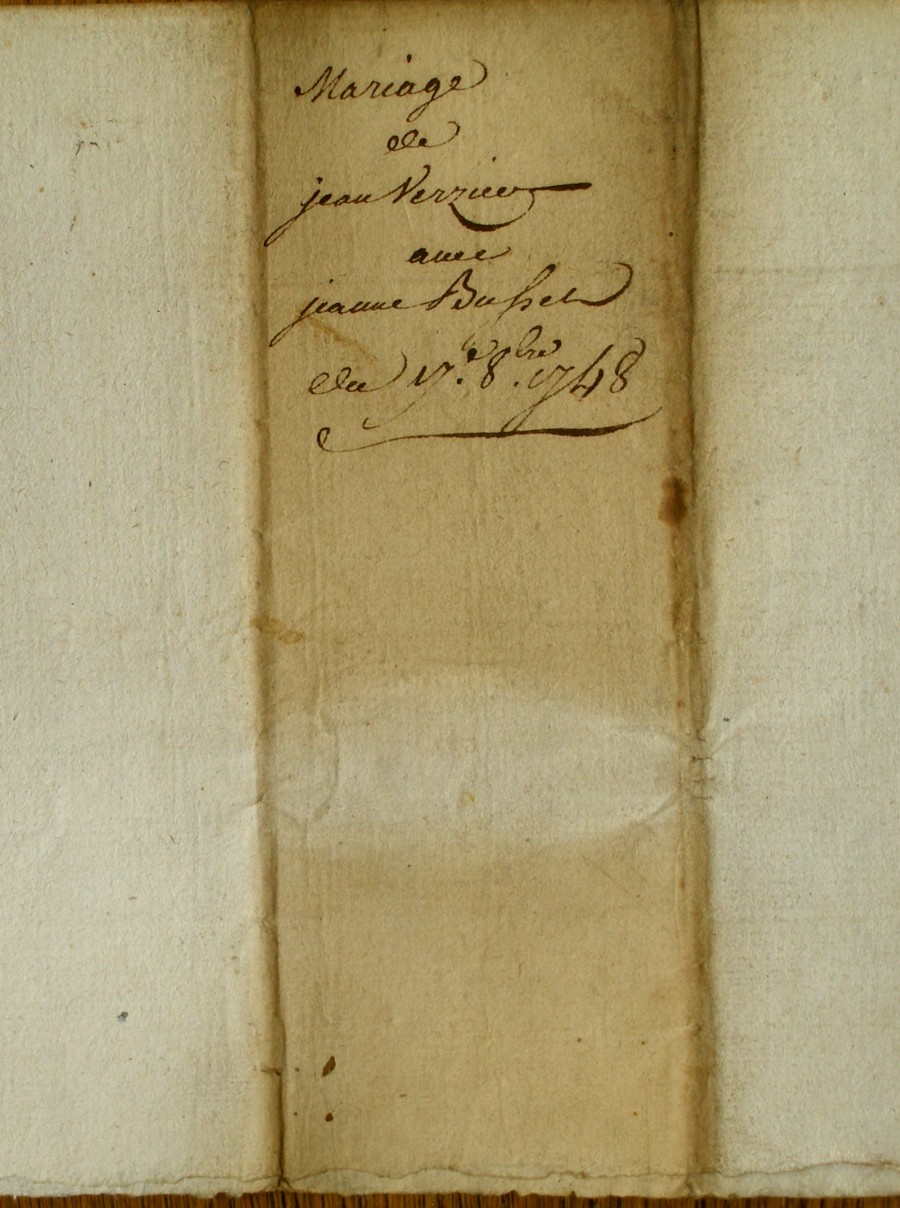 Mariage
de
jean Verzier
avec
jeanne Bussel
du 17.e 8.bre 1748